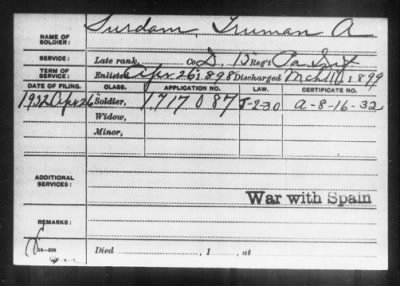 NAME OF SOLDIER: Surdam, Truman A
SERVICE: Late rank, Co D, 15" Reg't Pa Inf
TERM OF SERVICE: Enlisted Apr. 26, 1898 Discharged Mch 11, 1899
DATE OF FILING. CLASS. APPLICATION NO. LAW. CERTIFICATE NO.
1932 Apr 26 Soldier, 1717087 J-2-30 A-8-16-32
Widow,
Minor,
ADDITIONAL SERVICES:
War with Spain
REMARKS:
Died , 1 , at